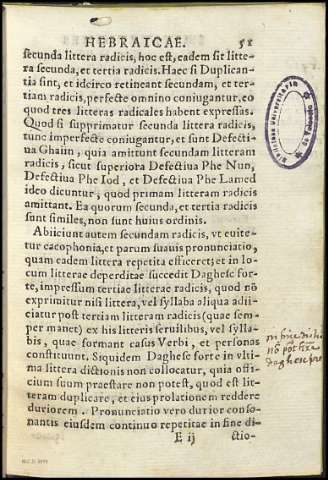 HEBRAICAE. 51
secunda littera radicis, hoc est, eadem sit litte-
ra secunda, et tertia radicis. Haec si Duplican-
tia sint, et idcirco retineant secundam, et ter-
tiam radicis, perfecte omnino coniugantur, eo
quod tres litteras radicales habent expressas.
Quod si supprimatur secunda littera radicis,
tunc imperfecte coniugantur, et sunt Defecti-
ua Ghaiin, quia amittunt secundam litteram
radicis, sicut superiora Defectiua Phe Nun,
Defectiua Phe Iod, et Defectiua Phe Lamed
ideo dicuntur, quod primam litteram radicis
amittant. Ea quorum secunda, et tertia radicis
sunt similes, non sunt huius ordinis.
Abiiciunt autem secundam radicis, vt euite-
tur cacophonia, et parum suauis pronunciatio,
quam eadem littera repetita efficeret; et in lo-
cum litterae deperditae succedit Daghesc for-
te, impressum tertiae litterae radicis, quod nō
exprimitur nisi littera, vel syllaba aliqua adii-
ciatur post tertiam litteram radicis (quae sem-
per manet) ex his litteris seruilibus, vel sylla-
bis, quae formant casus Verbi, et personas
constituunt. Siquidem Daghesc forte in vlti-
ma littera dictionis non collocatur, quia offi-
cium suum praestare non potest, quod est lit-
teram duplicare, et eius prolationem reddere
duriorem. Pronunciatio vero durior conso-
nantis eiusdem continuo repetitae in fine di-
E ij ctio-
Biblioteca Universitaria
in fine dictio
nō pōt
daghesc